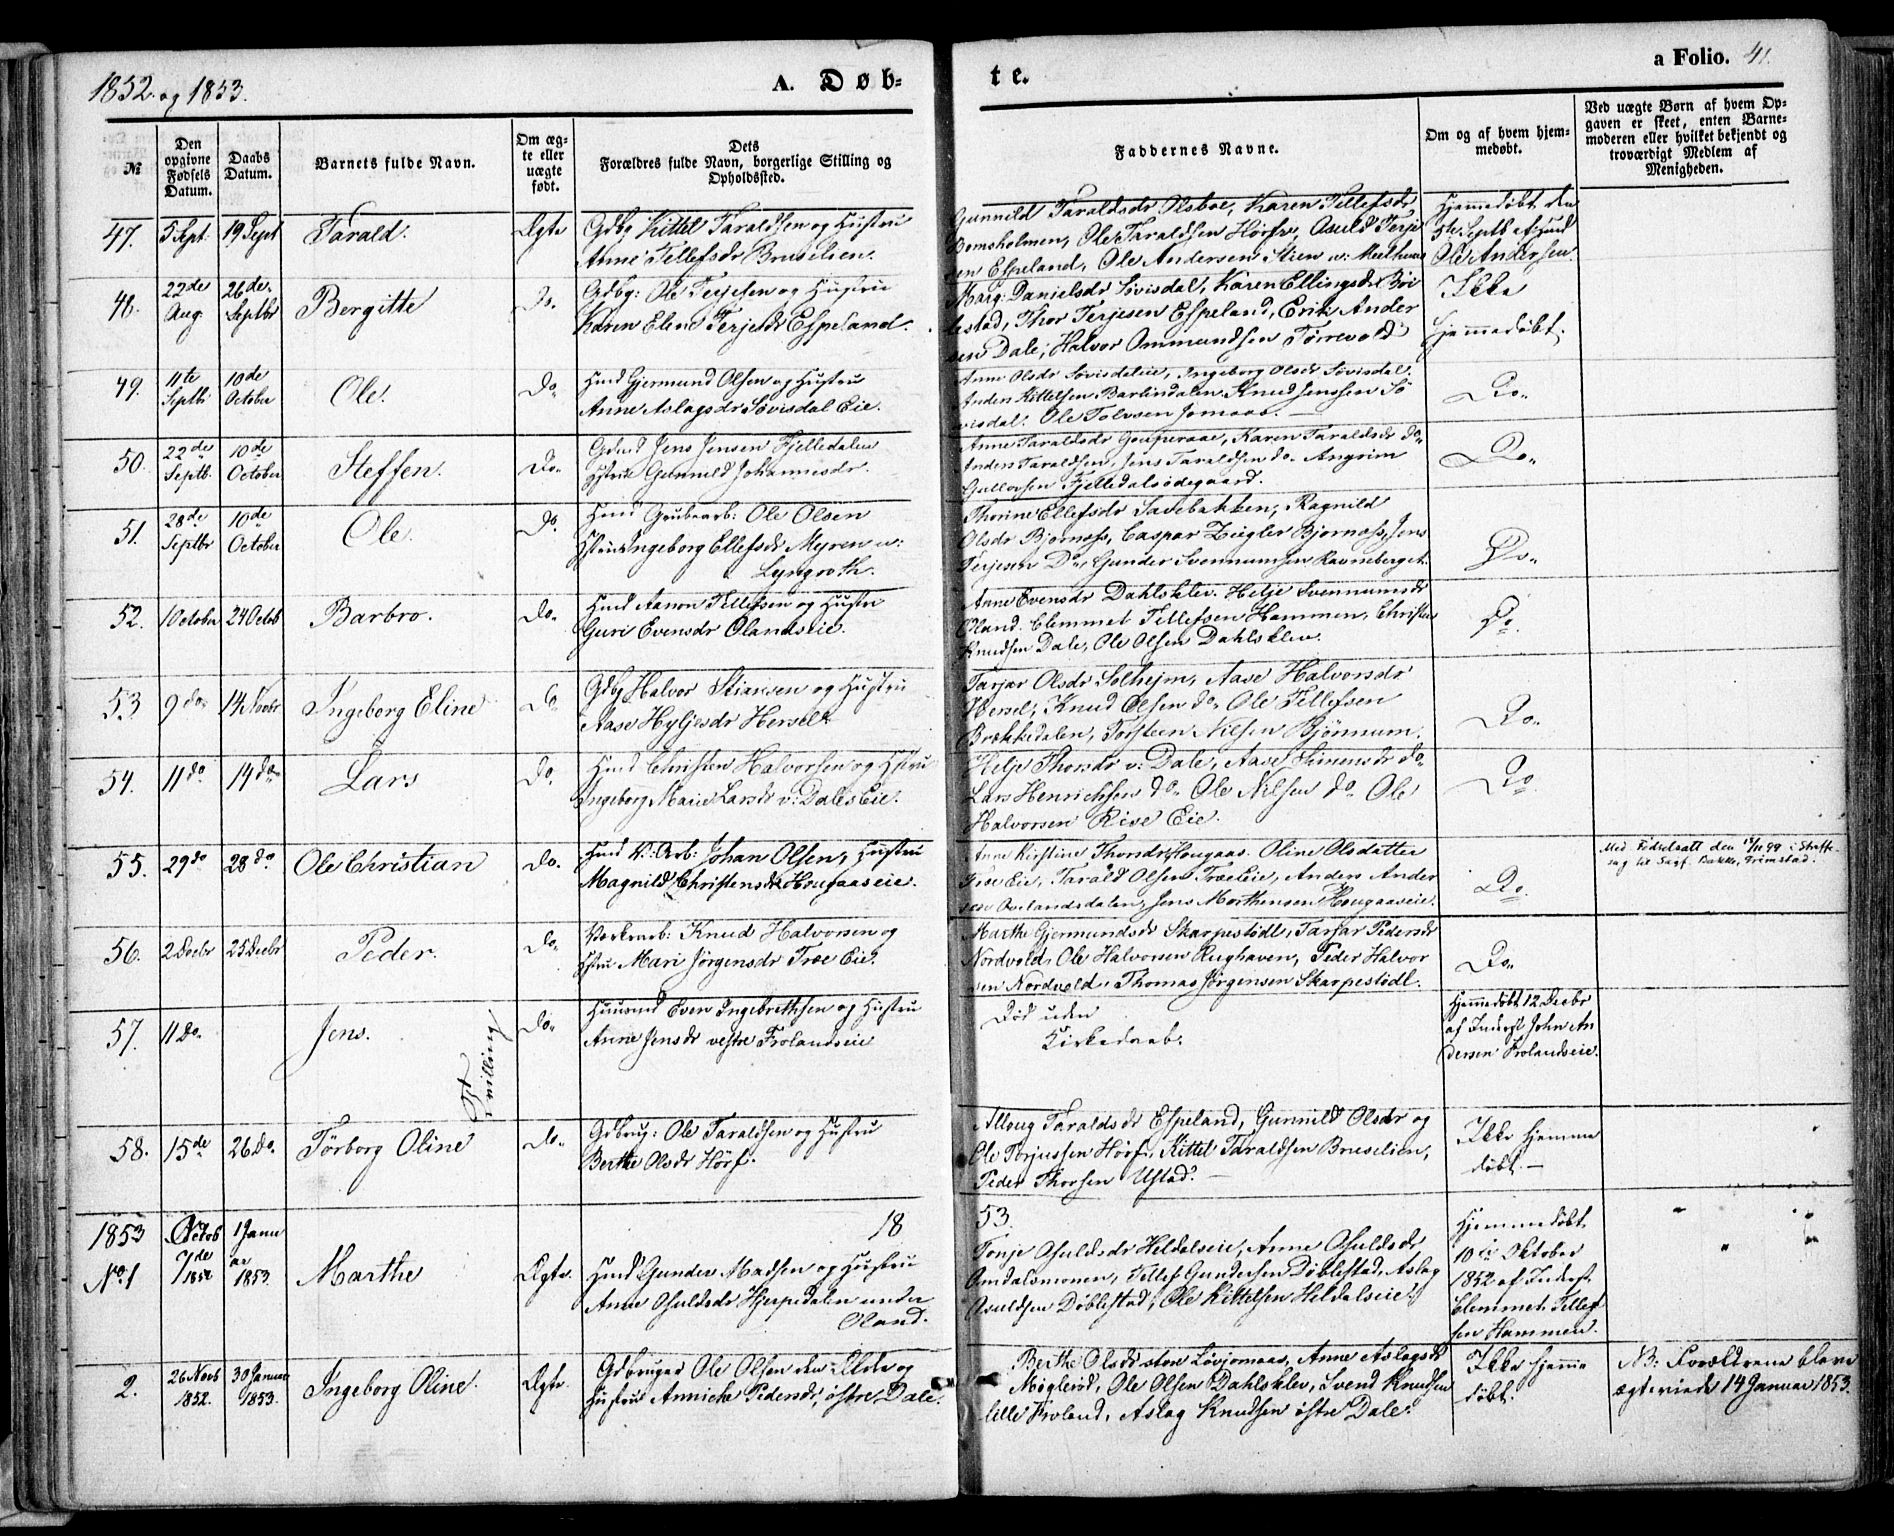 1852. og 1853.
A. Døb-
te.
a Folio. 41.
№
Den opgivne Fødsels Datum.
Daabs Datum.
Barnets fulde Navn.
Om ægte eller uægte født.
Dets Forældres fulde Navn, borgerlige Stilling og Opholdssted.
Faddernes Navne.
Om og af hvem hjemmedøbt.
Ved uægte Børn af hvem Opgaven er skeet, enten Barnemoderen eller hvilket bekjendt og troværdigt Medlem af Menigheden.
47. 5 Sept. 19 Sept Tarald. Ægte
Gdbg Kittel Taraldsen og Hustru
Anne Tellefsdr Bruselien.
Gunnild Taraldsdr Olsboe, Karen Tellefsdr
Bomsholmen, Ole Taraldsen Hörfv, Osuld Terje
sen Espeland, Ole Andersen Stien
Hjemmedøbt den
5te Septb af Huusd
Ole Andersen.
48. 22de Aug. 26de Septbr Bergitte Do.
Gdbg: Ole Terjesen og Hustru
Karen Elene Terjesdr Espeland.
Marg: Danielsdr Søvisdal, Karen Ellingsdr Böi
lestad, Thor Terjesen Espeland, Erik Ander
sen Dale, Halvor Ommundsen Tørrevold
Ikke
hjemmedøbt.
49. 11te Septbr 10de October Ole. Do
Husd Gjermund Olsen og Hustru
Anne Aslagsdr Søvisdal Eie.
Anne Olsdr Søvisdaleie, Ingeborg Olsdr Søvisdal.
Anders Kittelsen Barlindalen Knud Jenssen Sö
visdal. Ole Tolvsen Jomaas.
Do.
50. 22de Septb. 10de October Steffen. Do
Gdmd Jens Jensen Fjelledalen
Hstru Gunnild Johannesdr.
Anne Taraldsdr Gouperaae, Karen Taraldsdr do.
Anders Taraldsen, Jens Taraldsen do. Angrim
Gullovsen Fjelledalsødegaard.
Do.
51. 28de Septbr 10de October Ole. Do.
Husd Grubearb: Ole Olsen
Hstru Ingeborg Ellefsdr Myren u:
Lyngroth.
Thorine Ellefsdr Savebakken, Ragnild
Olsdr Bjornaas, Caspar Zeigler Bjornaas, Jens
Terjesen Do, Gunder Svennumsen Ravneberget.
Do.
52. 1 October 24 Octob Barbro. Do.
Husd Aanon Tellefsen og Hustru
Guri Evensdr Olandseie.
Anne Evensdr Dahlsklev. Helje Svennumsdr
Oland. Clemmet Tellefsen Hammen, Christen
Knudsen Dale, Ole Olsen Dahlsklev.
Do.
53 9 do 14 Novbr Ingeborg Eline Do
Gdbg Halvor Stiansen og Hustru
Aase Hyljesdr Hersel.
Tarjar Olsdr Solheim, Aase Halvorsdr
Hersel, Knud Olsen do. Ole Tellefsen
Brækkedalen, Torsteen Nilsen Bjönnum.
Do.
54. 11 do 14 do Lars Do,
Husd Christen Halvorsen og Hstru
Ingeborg Marie Larsdr v: Dales Eie.
Helje Thorsdr v: Dale, Aase Simensdr do
Lars Henrichsen do Ole Nilsen do Ole
Halvorsen Rise Eie.
Do.
55. 29 do 28 do Ole Christian Do.
Husd V: Arb: Johan Olsen, Hustru
Magnild Christensdr Hougaaseie.
Anne Kirstine Thorsdr Hougaas. Oline Olsdatter
Træ Eie, Tarald Olsen Træeie, Anders Ander
sen Ovelandsdalen, Jens Morthensen Hougaaseie.
Do.
Med Fødselsatt den
sag til Sagf. Bakke, Grimstad.
56. 2 Decbr 25 Decbr Peder. Do
Værksarb: Knud Halvorsen og
Hstru Mari Jörgensdr Træ Eie.
Marthe Gjermundsdr Skarpestödl, Tarjar Pedersdr
Nordvold, Ole Halvorsen Rughaven, Peder Halvor
sen Nordvold, Thomas Jörgensen Skarpestödl.
Do.
57. 11 Do. Jens. Tvilling Do.
Huusmd Even Ingebrethsen og Hustru
Anne Jensdr vestre Frolandseie
Död uden
Kirkedaab.
Hjemmedøbt 12 Decbr
af Inderst John An
dersen Frolandseie.
58. 15de 26 Do. Törborg Oline Do.
Gdbrug: Ole Taraldsen og Hustru
Berthe Olsdr Hörf.
Alloug Taraldsdr Espeland, Gunnild Olsdr og
Ole Torjussen Hörf, Kittel Taraldsen Bruselien,
Peder Thorsen Ustad.
Ikke hjemme
döbt.
1853 18 53.
No. 1 Octob 7de 1852 1 Janu ar 1853. Marthe Ægte.
Husd Gunder Madsen og Hustru
Anne Osuldsdr Hjerpedalen under
Oland.
Tonje Osuldsdr Heldalseie, Anne Osuldsdr
Omdalsmonen, Tellef Gundersen Döblestad, Aslag
Osuldsen Döblestad, Ole Kittelsen Heldalseie.
Hjemmedöbt
10de Oktober
1852 af Inderst.
Clemmet Tellef
sen Hammen.
2. 26 Novb 1852. 30 Januar 1853. Ingeborg Oline. Ægte.
Gdbruger Ole Olsen den Eldre og
Hustru Anniche Pedersdr, östre Dale.
Berthe Olsdr store Lövjomaas, Anne Aslagsdr
Möglerud, Ole Olsen Dahlsklev, Svend Knudsen
lille Froland, Aslag Knudsen östre Dale.
Ikke hjemme
döbt.
NB: Forældrene bleve
ægteviede 14 Januar 1853.